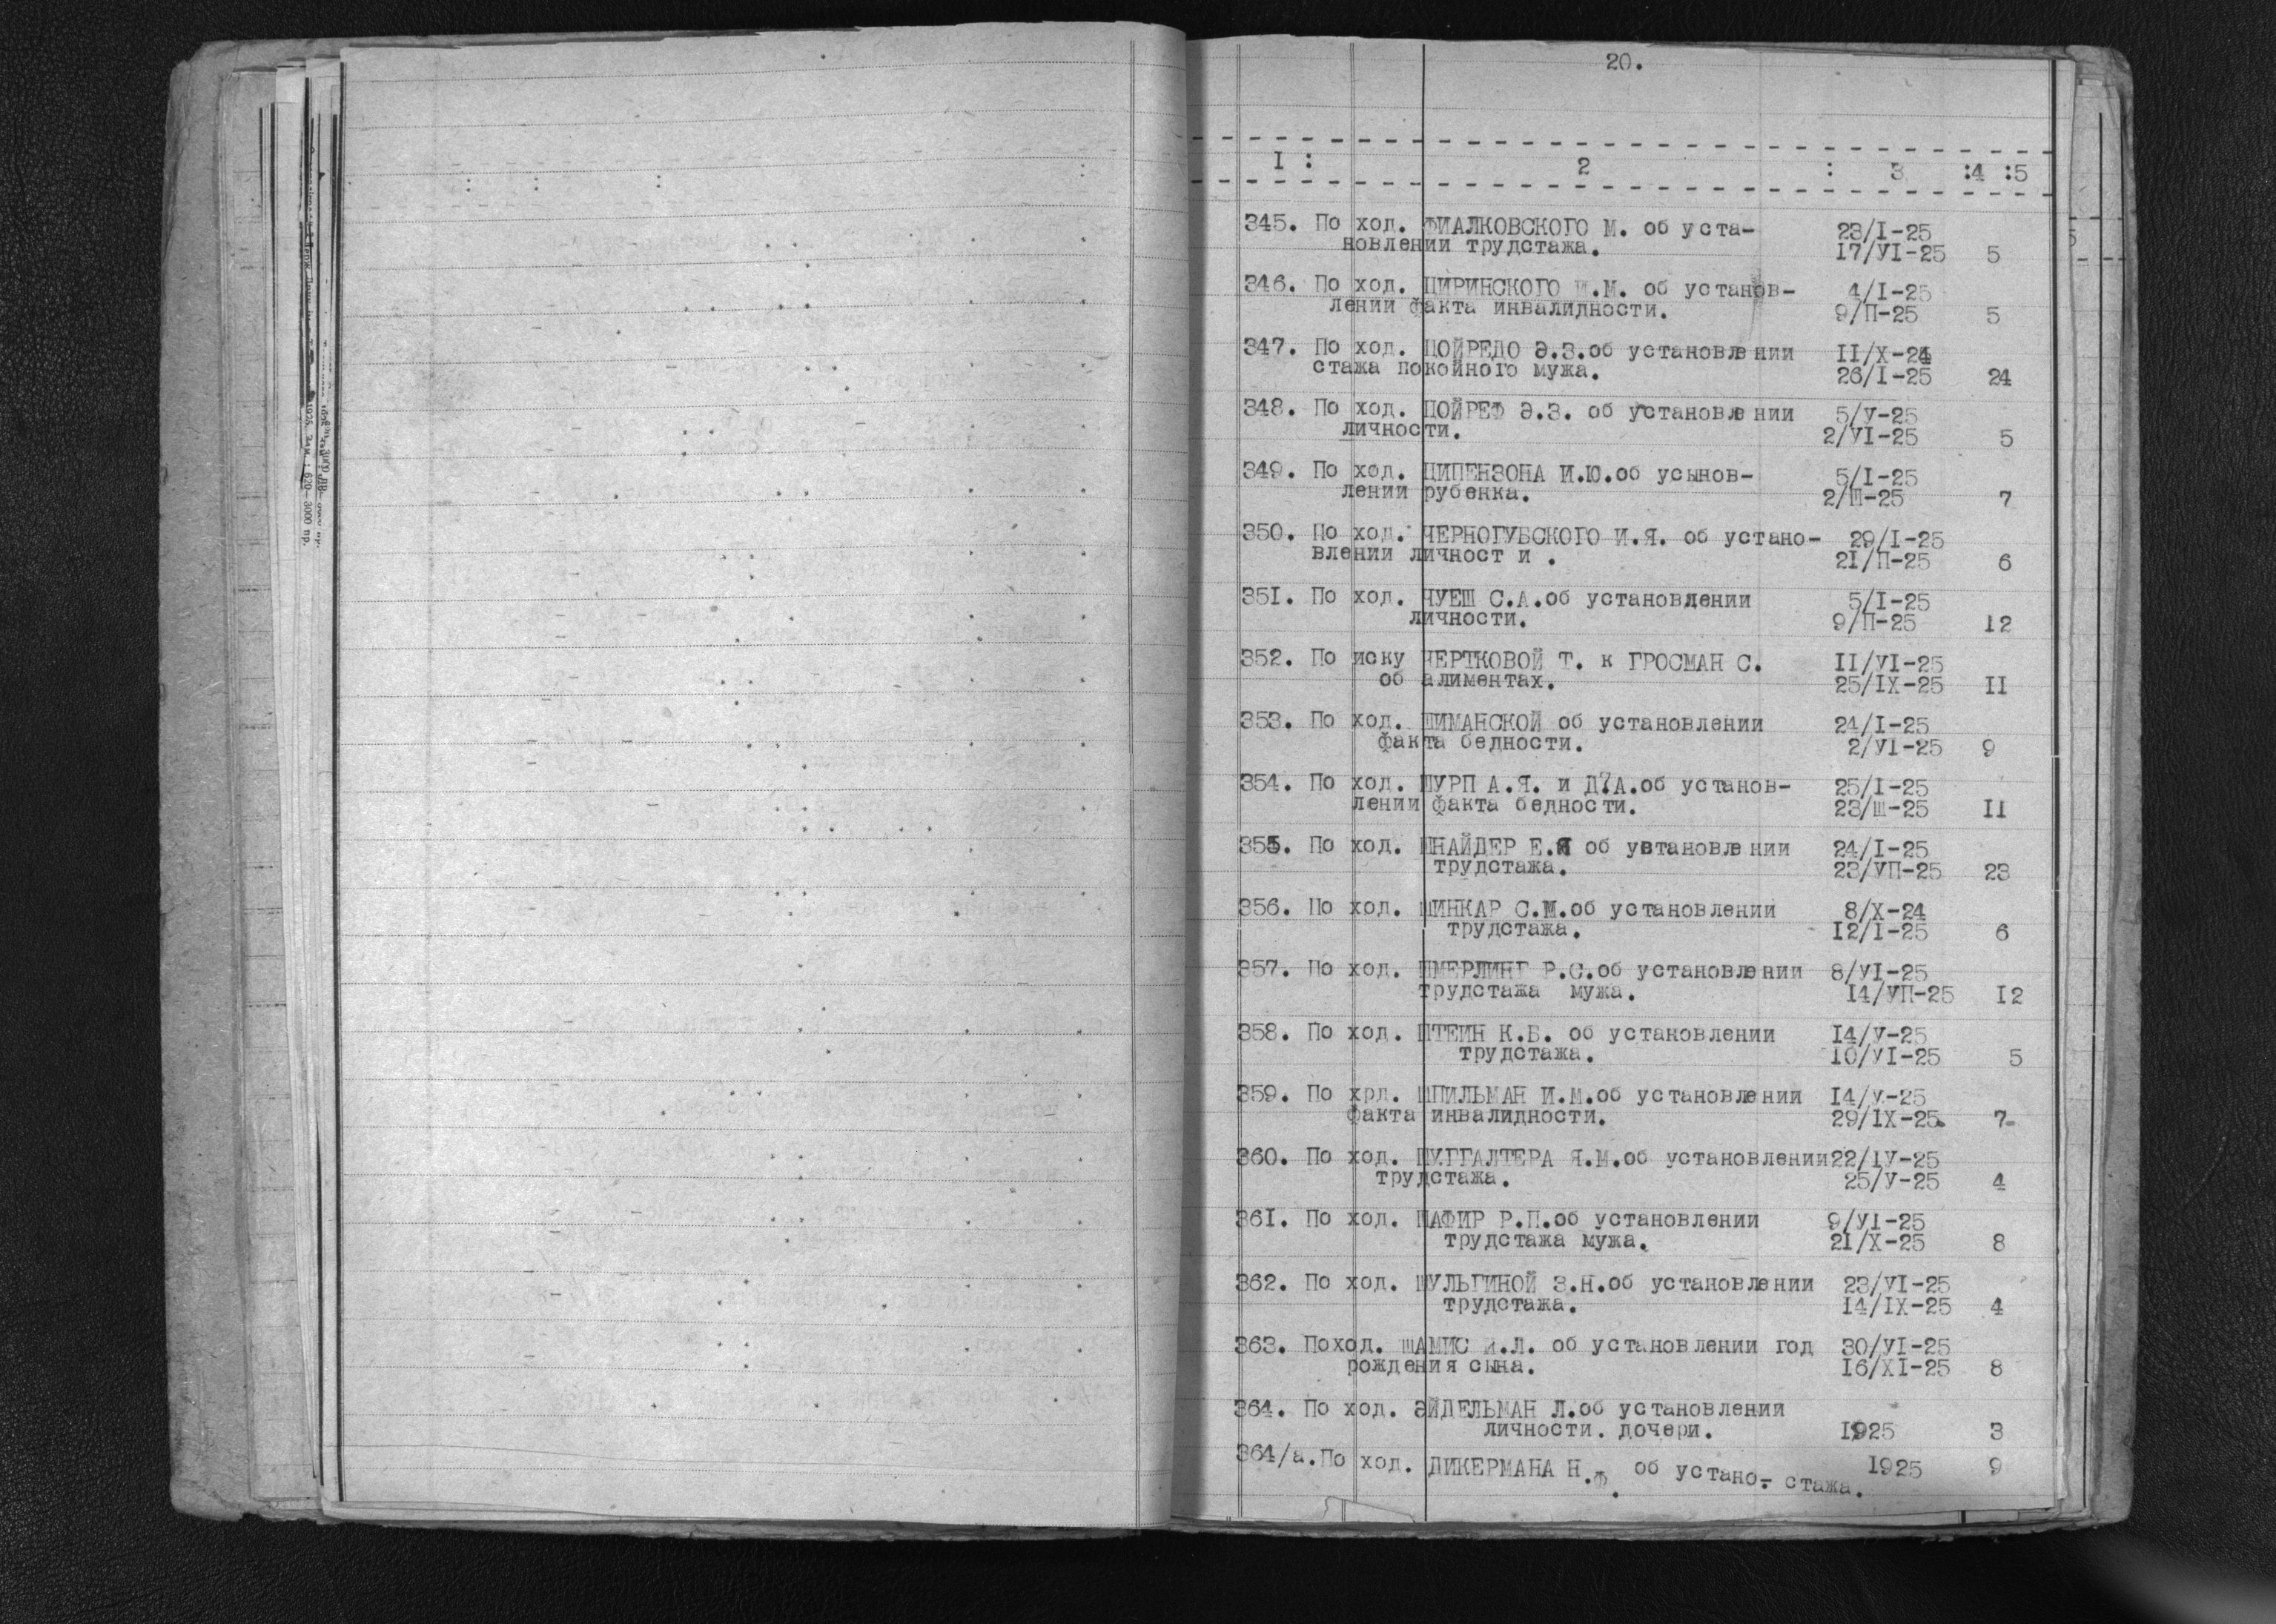 20.
I : 2 : 3 :4 :5
345. По ход. ФИАЛКОВСКОГО М. об уста- 23/I-25
новлении трудстажа. 17/УI-25 5
346. По ход. ЦИРИНСКОГО И.М. об установ- 4/I-25
лении факта инвалидности. 9/П-25 5
347. По ход. ЦОЙРЕДО Э.З.об установлении II/X-24
стажа покойного мужа. 26/I-25 24
348. По ход. ЦОЙРЕФ Э.З. об установлении 5/У-25
личности. 2/УI-25 5
349. По ход. ЦИПЕНЗОНА И.Ю.об усынов- 5/I-25
лении рубенка. 2/Ш-25 7
350. По ход. ЧЕРНОГУБСКОГО И.Я. об устано- 29/I-25
влении личност и . 21/П-25 6
351. По ход. ЧУЕШ С.А.об установлении 5/I-25
личности. 9/П-25 12
352. По иску ЧЕРТКОВОЙ Т. к ГРОСМАН С. II/УI-25
об алиментах. 25/IX-25 II
353. По ход. ШИМАНСКОЙ об установлении 24/I-25
факта бедности. 2/УI-25 9
354. По ход. ШУРП А.Я. и Д?А.об установ- 25/I-25
лении факта бедности. 23/Ш-25 II
355. По ход. ШНАЙДЕР Е.Я об увтановлении 24/I-25
трудстажа. 23/УП-25 23
356. По ход. ШИНКАР С.М.об установлении 8/X-24
трудстажа. I2/I-25 6
357. По ход. ШМЕРЛИНГ Р.С.об установлении 8/УI-25
трудстажа мужа. I4/УП-25 I2
358. По ход. ШТЕИН К.Б. об установлении I4/У-25
трудстажа. I0/УI-25 5
359. По хрд. ШПИЛЬМАН И.М.об установлении I4/У-25
факта инвалидности. 29/IX-25. 7-
360. По ход. ШУГГАЛТЕРА Я.М.об установлении 22/IУ-25
трудстажа. 25/У-25 4
361. По ход. ШАФИР Р.П.об установлении 9/УI-25
трудстажа мужа. 2I/X-25 8
362. По ход. ШУЛЬГИНОЙ З.Н.об установлении 23/УI-25
трудстажа. I4/IX-25 4
363. Поход. ШАМИС И.Л. об установлении год 30/УI-25
рождения сына. I6/XI-25 8
364. По ход. ЭЙДЕЛЬМАН Л.об установлении
личности. дочери. 1925 3
364/а.По ход. ДИКЕРМАНА Н.Ф. об устано-. стажа. 1925 9